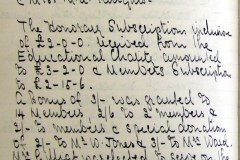 The Honorary Subscription inclusive
of £2-0-0. received from the
Educational Charity amounted
to £3-2-0 & Members Subscription
to £2-15-6.
A Bonus of 3/- was granted to
14 Members 2/6 to 2 members &
2/- to members & special donation
of 2/- to Mr W. Jones & 3/- to Mrs Ward.